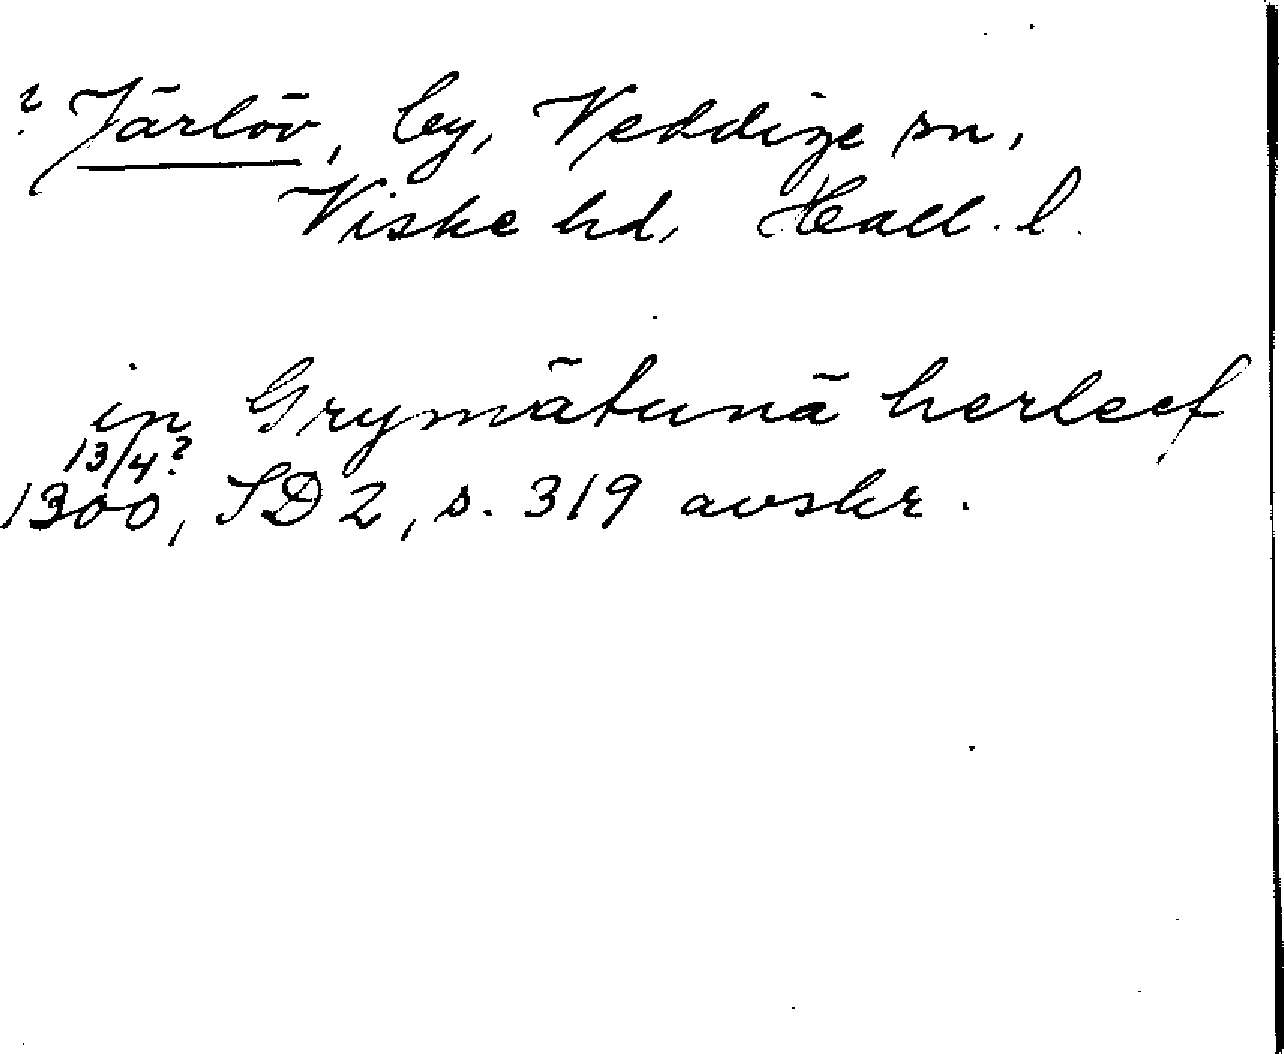 ? Järlöv, by, Veddige sn,
Viske hd, Hall. l.
in Grymätunä herleef
13/4?
1300, SD 2, s. 319 avskr.